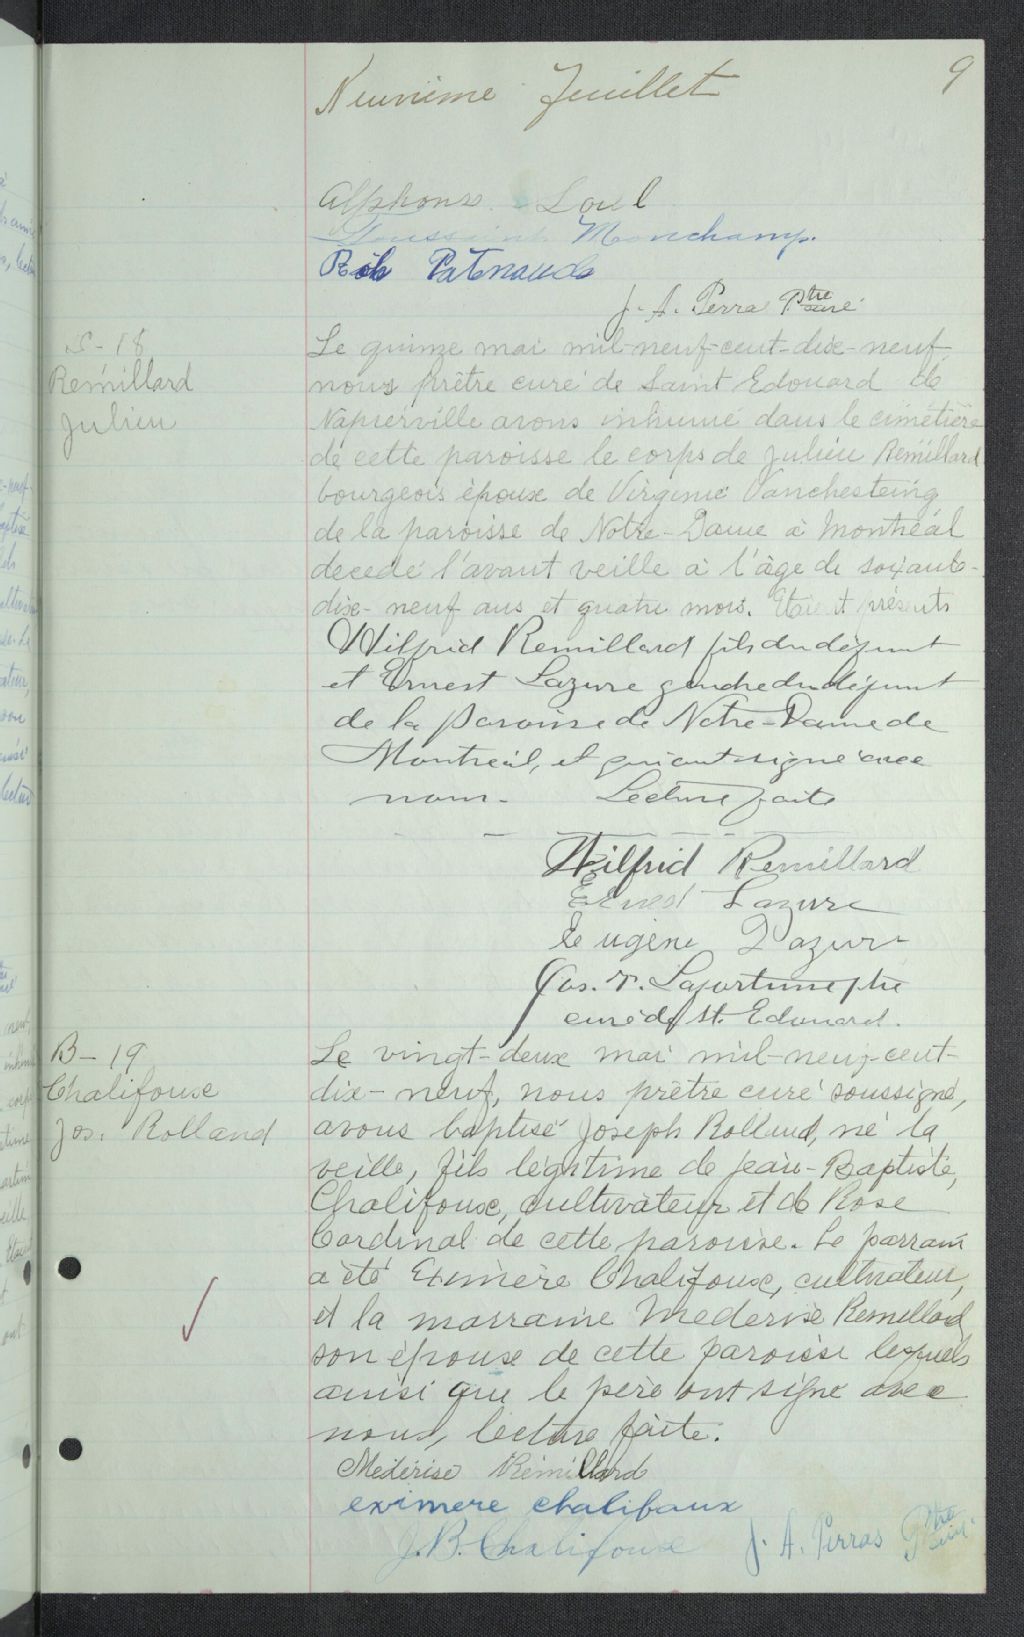 Neuvième feuillet
9
Alphonse
Toussaint Monchamp.
Rob Patenaude
J. A. Perras Ptre curé
S-18
Remillard
Julien
Le quinze mai mil-neuf-cent-dix-neuf
nous prêtre curé de Saint Edouard de
Napierville avons inhumé dans le cimétière
de cette paroisse le corps de Julien Remillard
bourgeois époux de Virginie Vanchesteing
de la paroisse de Notre-Dame à Montréal
décédé l'avant veille à l'âge de soixante-
dix-neuf ans et quatre mois. Etaient présents
Wilfrid Remillard fils du défunt
et Ernest Lazure gendre du défunt
de la paroisse de Notre-Dame de
Montréal, et qui ont signé avec
nous. Lecture faite
Wilfrid Remillard
Ernest Lazure
Eugène Lazure
Jos. Lafortune ptre
curé de St. Edouard.
B-19
Chalifoux
Jos. Rolland
Le vingt-deux mai mil-neuf-cent-
dix-neuf, nous prêtre curé soussigné,
avons baptisé Joseph Rolland, né la
veille, fils légitime de Jean-Baptiste,
Chalifoux, cultivateur et de Rose
Cardinal de cette paroisse. Le parrain
a été Eximère Chalifoux, cultivateur,
et la marraine Mederise Remillard
son épouse de cette paroisse lesquels
ainsi que le père ont signé avec
nous, lecture faite.
Mederise Remillard
eximere chalifoux
J. B. Chalifoux J. A. Perras Ptre curé